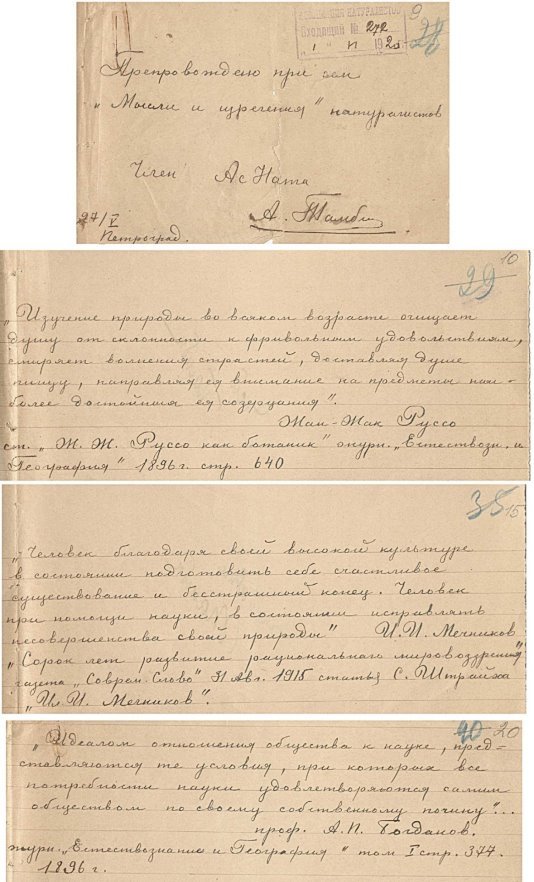 9
28
Входящий № 272
Препровождаю при сем
„Мысли и изречения" натуралистов
Член Ас Ната
А. Тамбі
27/V
Петроград.
10
29
„Изучение природы во всяком возрасте очищает
душу от склонности к фривольным удовольствиям,
смиряет волнения страстей, доставляя душе
пищу, направляя ея внимание на предметы наи-
более достойныя ея созерцания".
Жан-Жак Руссо
ст. „Ж. Ж. Руссо как ботаник" журн. „Естествозн. и
География" 1896 г. стр. 640
35 15
„Человек благодаря своей высокой культуре
в состоянии подготовить себе счастливое
существование и бесстрашный конец. Человек
при помощи науки, в состоянии исправлять
несовершенства своей природы" И.И. Мечников
„Сорок лет развитие рационального мировоззрения"
газета „Соврем. Слово" 31 Авг. 1915 статья С. Штрайха
„И. И. Мечников".
40 20
„Идеалом отношения общества к науке, пред=
ставляются те условия, при которых все
потребности науки удовлетворяются самим
обществом по своему собственному почину"...
проф. А. П. Богданов.
журн. „Естествознание и География" том I стр. 377.
1896 г.